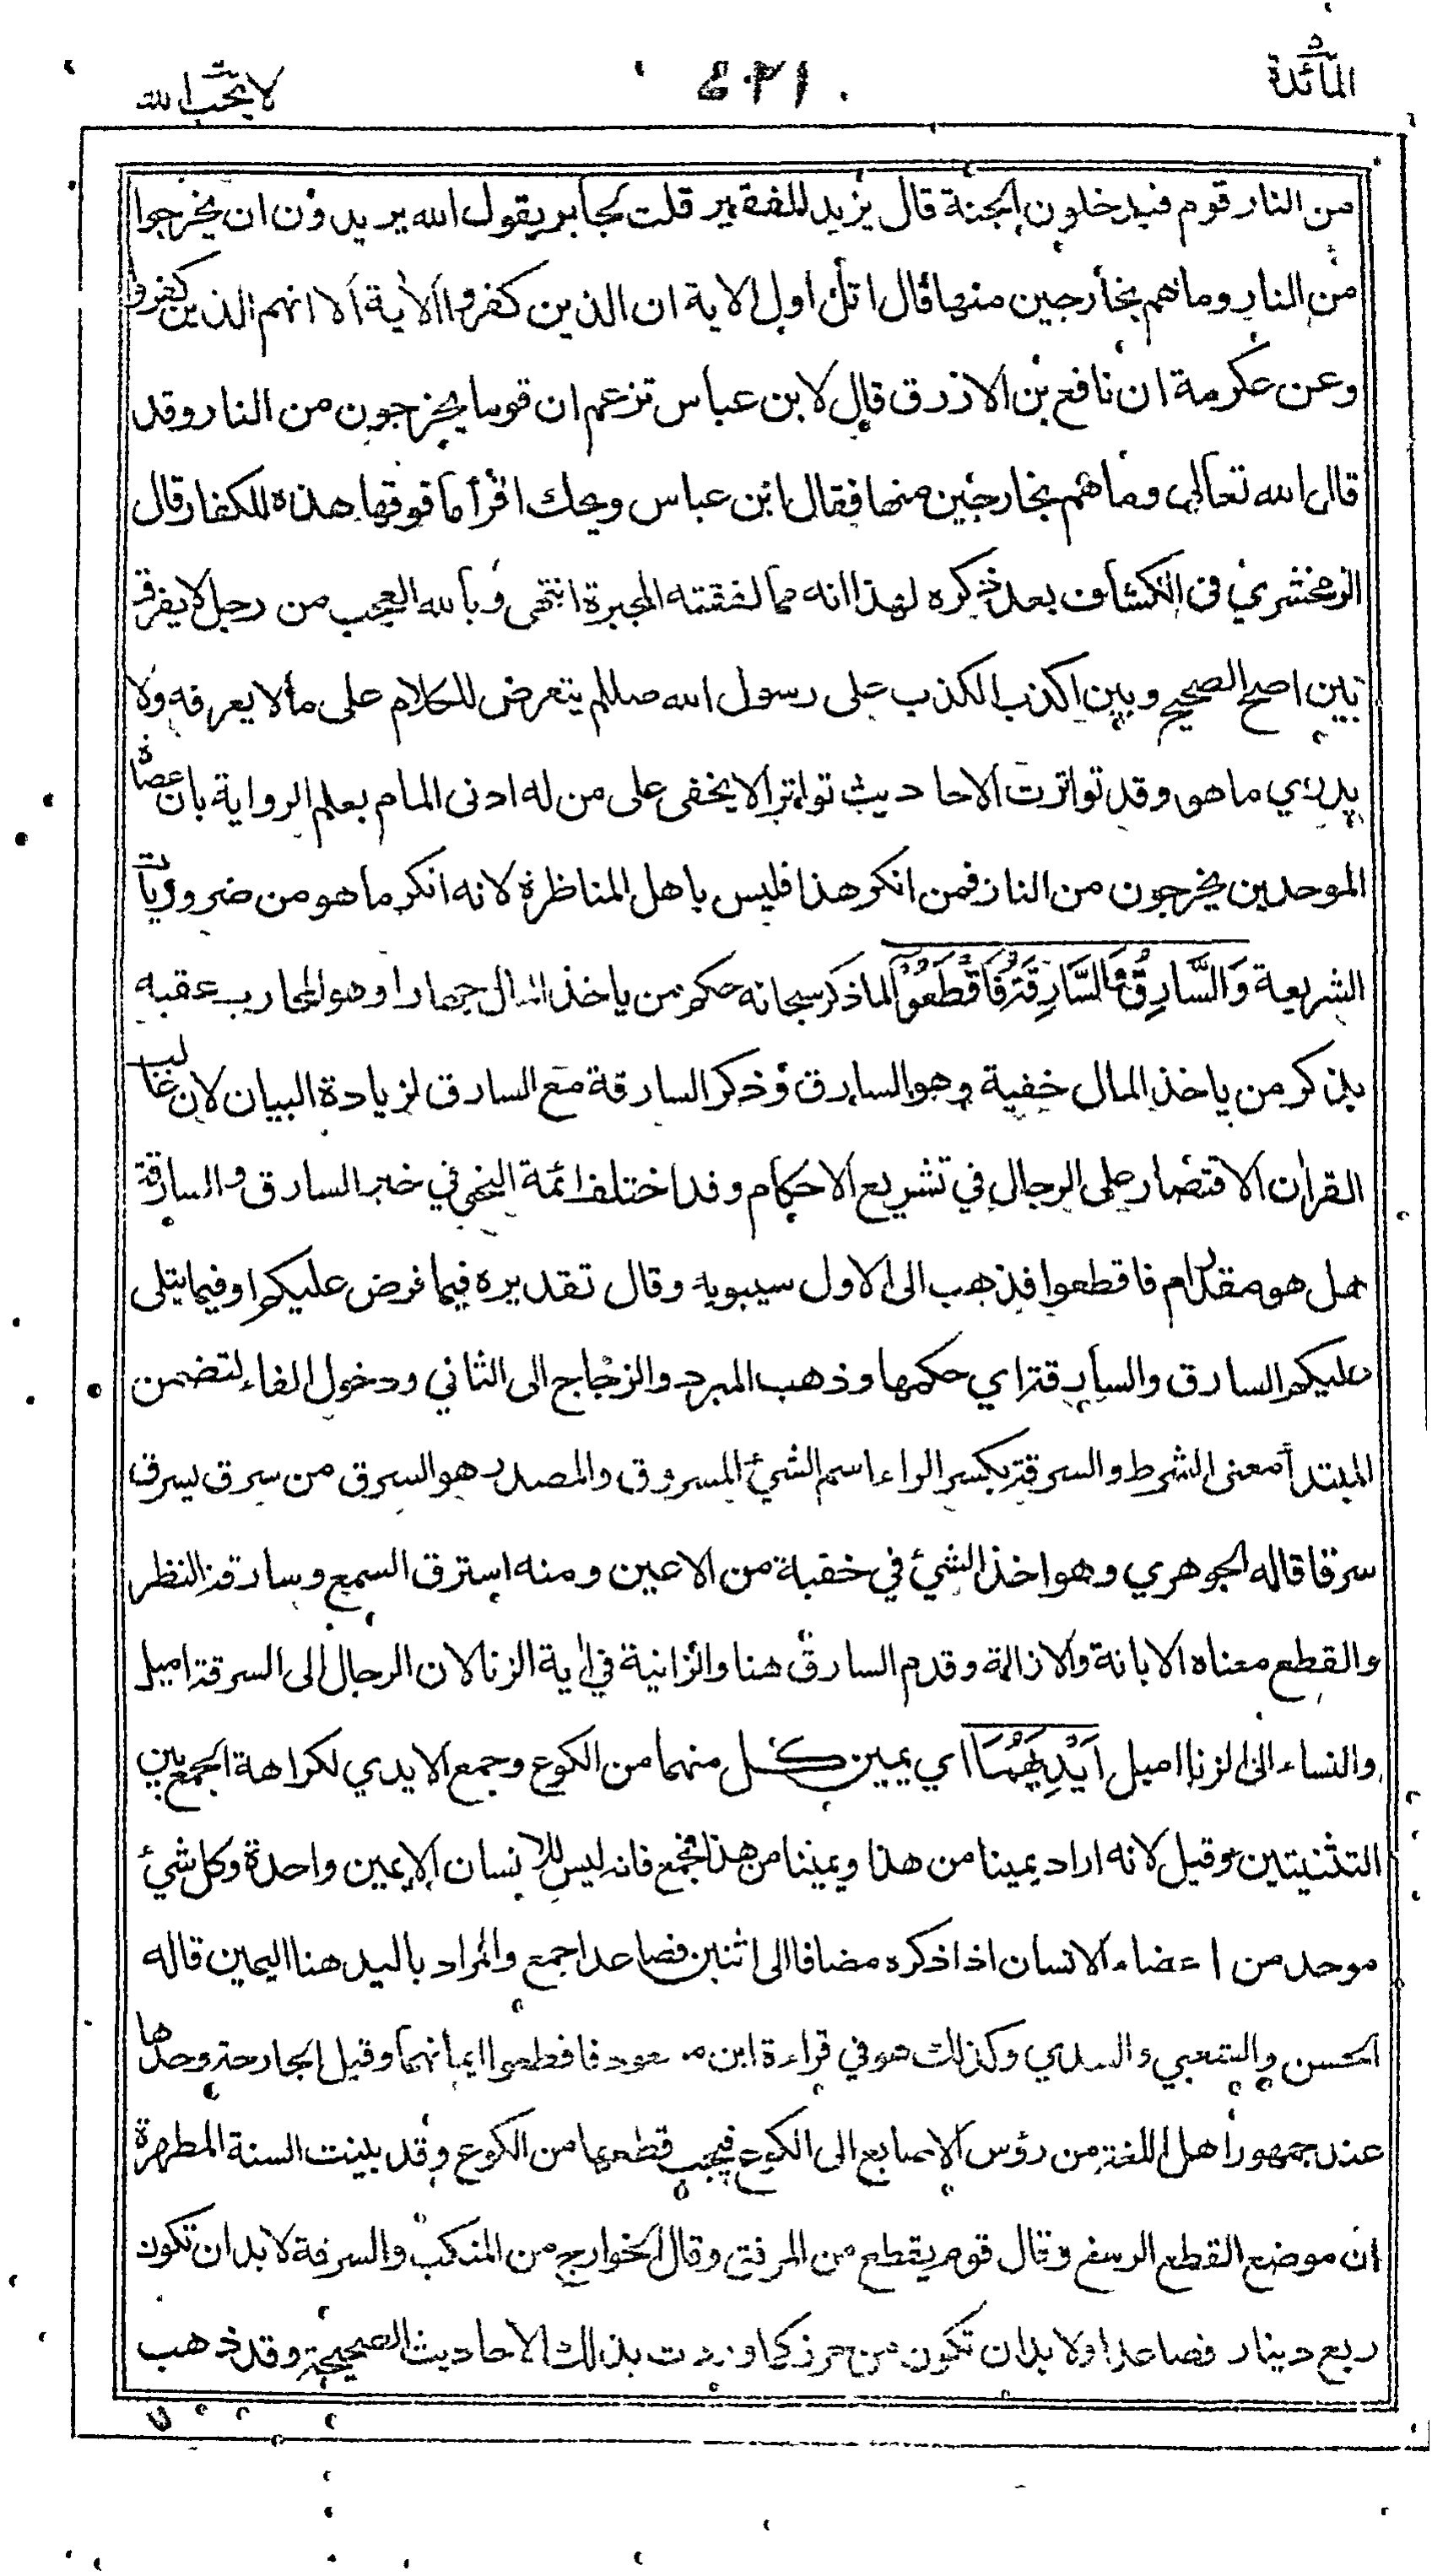 المائدة
لا يحب الله
من النار قوم فيدخلون الجنة قال يزيد الفقير قلت لجابر يقول الله يريدون ان يخرجوا
من النار وما هم بخارجين منها قال اتل اول الاية ان الذين كفروا الاية الا انهم الذين كفروا
وعن عكرمة ان نافع بن الازرق قال لابن عباس تزعم ان قوما يخرجون من النار وقد
قال الله تعالى وما هم بخارجين منها فقال ابن عباس ويحك اقرأ ما فوقها هذه للكفار قال
الزمخشري في الكشاف بعد ذكره لهذا انه مما لفقته المجبرة انتهى وبالله العجب من رجل لا يفرق
بين اصح الصحيح وبين اكذب الكذب على رسول الله صللم يتعرض للكلام على ما لا يعرفه ولا
يدري ما هو وقد تواترت الاحاديث تواترا لا يخفى على من له ادنى المام بعلم الرواية بان عصاة
الموحدين يخرجون من النار فمن انكر هذا فليس باهل المناظرة لانه انكر ما هو من ضروريات
الشريعة وَالسَّارِقُ وَالسَّارِقَةُ فَاقْطَعُوْٓا لما ذكر سبحانه حكم من ياخذ المال جهارا وهو المحارب عقبه
بذكر من ياخذ المال خفية وهو السارق وذكر السارقة مع السارق لزيادة البيان لان غالب
القران الاقتصار على الرجال في تشريع الاحكام وقد اختلف ائمة النحو في خبر السارق والسارقة
هل هو مقدر ام فاقطعوا فذهب الى الاول سيبويه وقال تقديره فيما فرض عليكم او فيما يتلى
عليكم السارق والسارقة اي حكمها وذهب المبرد والزجاج الى الثاني ودخول الفاء لتضمن
المبتدأ معنى الشرط والسرقة بكسر الراء اسم الشيئ المسروق والمصدر هو السرق من سرق يسرق
سرقا قاله الجوهري وهو اخذ الشيئ في خفية من الاعين ومنه استرق السمع وسارقة النظر
والقطع معناه الابانة والازالة وقدم السارق هنا والزانية في اية الزنا لان الرجال الى السرقة اميل
والنساء الى الزنا اميل اَيْدِيَهُمَا اي يمين كل منهما من الكوع وجمع الايدي لكراهة الجمع بين
التثنيتين وقيل لانه اراد يمينا من هذا ويمينا من هذا فجمع فانه ليس للانسان الا يمين واحدة وكل شيئ
موحد من اعضاء الانسان اذا ذكره مضافا الى اثنين فصاعدا جمع والمراد باليد هنا اليمين قاله
الحسن والشعبي والسدي وكذلك هو في قراءة ابن مسعود فاقطعوا ايمانهما وقيل الجارحة وحدها
عند جمهور اهل اللغة من رؤس الاصابع الى الكوع فيجب قطعها من الكوع وقد بينت السنة المطهرة
ان موضع القطع الرسغ وقال قوم يقطع من المرفق وقال الخوارج من المنكب والسرقة لا بد ان تكون
ربع دينار فصاعدا ولا بد ان تكون من حرز كما وردت بذلك الاحاديث الصحيحة وقد ذهب